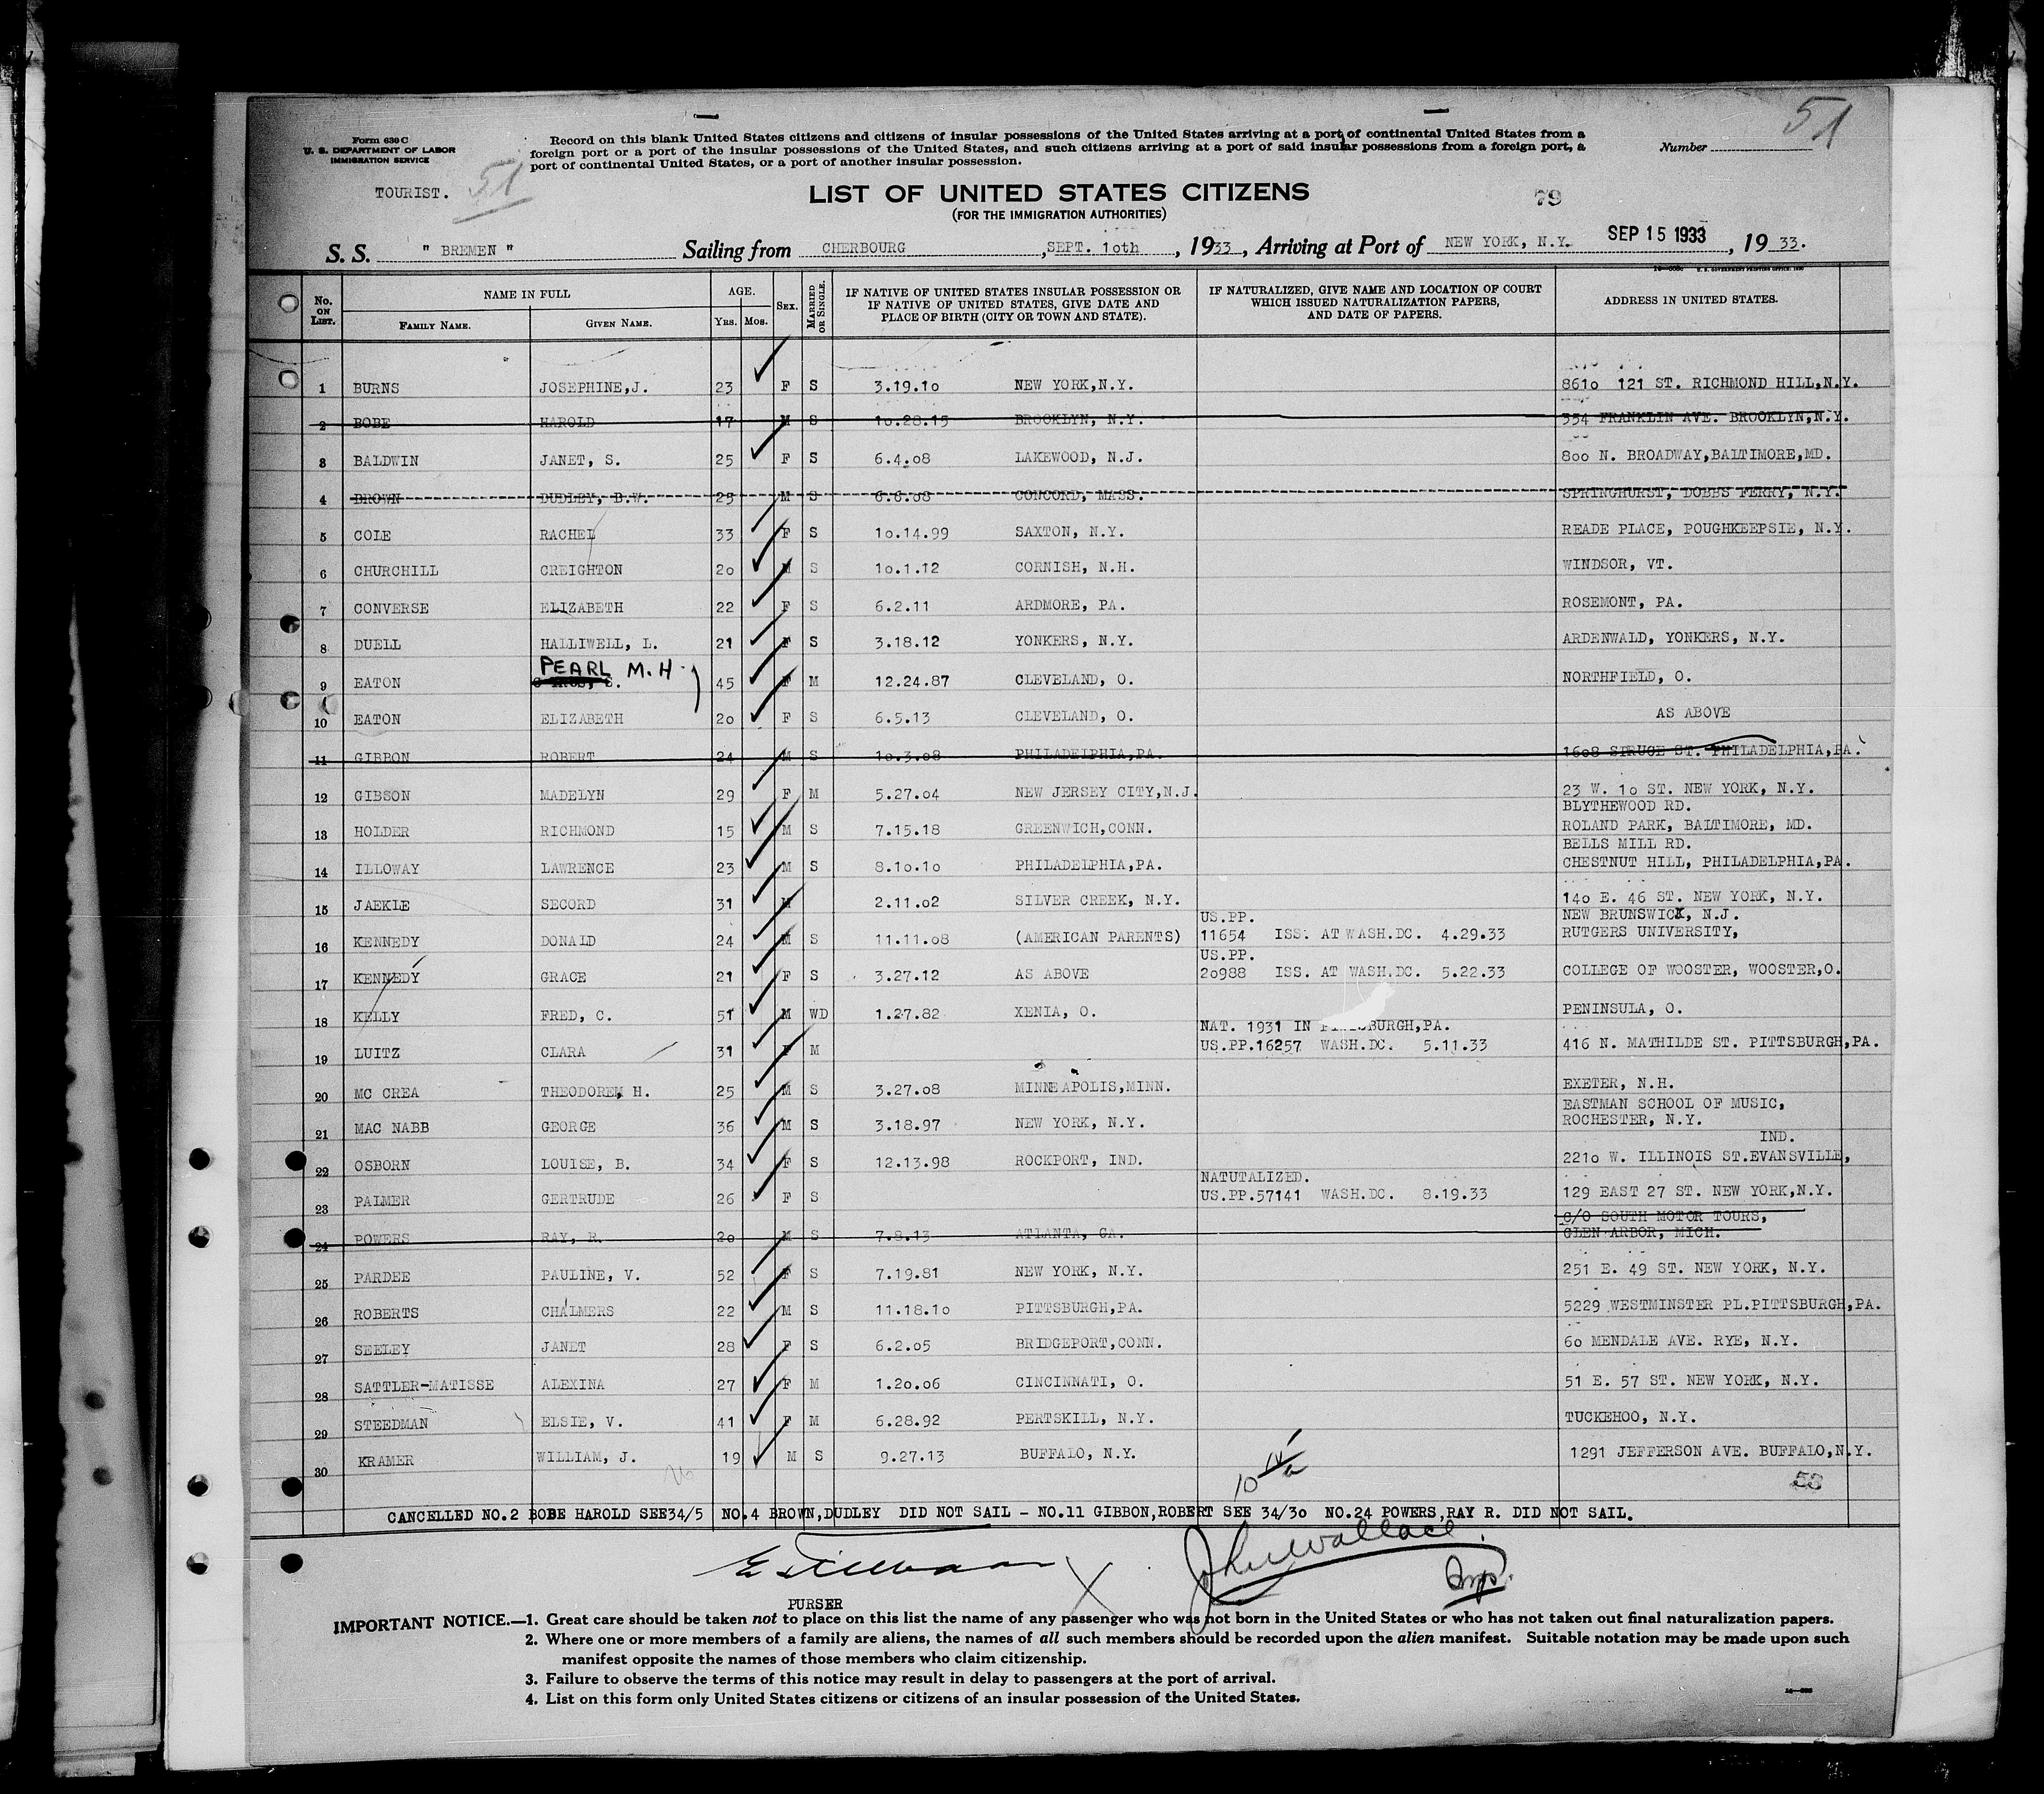 51
Form 630 C
U. S. DEPARTMENT OF LABOR
IMMIGRATION SERVICE
Record on this blank United States citizens and citizens of insular possessions of the United States arriving at a port of continental United States from a
foreign port or a port of the insular possessions of the United States, and such citizens arriving at a port of said insular possessions from a foreign port, a
port of continental United States, or a port of another insular possession.
Number
TOURIST. 51
LIST OF UNITED STATES CITIZENS
79
(FOR THE IMMIGRATION AUTHORITIES)
S. S. " BREMEN " Sailing from CHERBOURG , SEPT. 1oth , 1933, Arriving at Port of NEW YORK, N.Y. SEP 15 1933 , 1933.
No. ON LIST. NAME IN FULL FAMILY NAME. GIVEN NAME. AGE. YRS. MOS. SEX. MARRIED OR SINGLE. IF NATIVE OF UNITED STATES INSULAR POSSESSION OR IF NATIVE OF UNITED STATES, GIVE DATE AND PLACE OF BIRTH (CITY OR TOWN AND STATE). IF NATURALIZED, GIVE NAME AND LOCATION OF COURT WHICH ISSUED NATURALIZATION PAPERS, AND DATE OF PAPERS. ADDRESS IN UNITED STATES.
1 BURNS JOSEPHINE,J. 23 F S 3.19.1o NEW YORK,N.Y. 861o 121 ST. RICHMOND HILL,N.Y.
2 BOBE HAROLD 17 M S 1o.28.15 BROOKLYN, N.Y. 354 FRANKLIN AVE. BROOKLYN,N.Y.
3 BALDWIN JANET, S. 25 F S 6.4.o8 LAKEWOOD, N.J. 8oo N. BROADWAY,BALTIMORE,MD.
4 BROWN DUDLEY, B.W. 25 M S 6.6.o8 CONCORD, MASS. SPRINGHURST, DOBBS FERRY, N.Y.
5 COLE RACHEL 33 F S 1o.14.99 SAXTON, N.Y. READE PLACE, POUGHKEEPSIE, N.Y.
6 CHURCHILL CREIGHTON 2o M S 1o.1.12 CORNISH, N.H. WINDSOR, VT.
7 CONVERSE ELIZABETH 22 F S 6.2.11 ARDMORE, PA. ROSEMONT, PA.
8 DUELL HALLIWELL, L. 21 F S 3.18.12 YONKERS, N.Y. ARDENWALD, YONKERS, N.Y.
PEARL M.H.
9 EATON 45 F M 12.24.87 CLEVELAND, O. NORTHFIELD, O.
10 EATON ELIZABETH 2o F S 6.5.13 CLEVELAND, O. AS ABOVE
11 GIBBON ROBERT 24 M S 1o.3.o8 PHILADELPHIA,PA. 16o8 SPRUCE ST. PHILADELPHIA,PA.
12 GIBSON MADELYN 29 F M 5.27.o4 NEW JERSEY CITY,N.J. 23 W. 1o ST. NEW YORK, N.Y.
BLYTHEWOOD RD.
13 HOLDER RICHMOND 15 M S 7.15.18 GREENWICH,CONN. ROLAND PARK, BALTIMORE, MD.
BELLS MILL RD.
14 ILLOWAY LAWRENCE 23 M S 8.1o.1o PHILADELPHIA,PA. CHESTNUT HILL, PHILADELPHIA,PA.
15 JAEKLE SECORD 31 M 2.11.o2 SILVER CREEK, N.Y. 14o E. 46 ST. NEW YORK, N.Y.
US.PP. NEW BRUNSWICK, N.J.
16 KENNEDY DONALD 24 M S 11.11.o8 (AMERICAN PARENTS) 11654 ISS. AT WASH.DC. 4.29.33 RUTGERS UNIVERSITY,
US.PP.
17 KENNEDY GRACE 21 F S 3.27.12 AS ABOVE 2o988 ISS. AT WASH.DC. 5.22.33 COLLEGE OF WOOSTER, WOOSTER,O.
18 KELLY FRED, C. 51 M WD 1.27.82 XENIA, O. PENINSULA, O.
NAT. 1931 IN PITTSBURGH,PA.
19 LUITZ CLARA 31 F M US.PP.16257 WASH.DC. 5.11.33 416 N. MATHILDE ST. PITTSBURGH,PA.
20 MC CREA THEODORE, H. 25 M S 3.27.o8 MINNEAPOLIS,MINN. EXETER, N.H.
EASTMAN SCHOOL OF MUSIC,
21 MAC NABB GEORGE 36 M S 3.18.97 NEW YORK, N.Y. ROCHESTER, N.Y.
IND.
22 OSBORN LOUISE, B. 34 F S 12.13.98 ROCKPORT, IND. 221o W. ILLINOIS ST.EVANSVILLE,
NATUTALIZED.
23 PALMER GERTRUDE 26 F S US.PP.57141 WASH.DC. 8.19.33 129 EAST 27 ST. NEW YORK,N.Y.
C/O SOUTH MOTOR TOURS,
24 POWERS RAY, R. 2o M S 7.8.13 ATLANTA, GA. GLEN ARBOR, MICH.
25 PARDEE PAULINE, V. 52 F S 7.19.81 NEW YORK, N.Y. 251 E. 49 ST. NEW YORK, N.Y.
26 ROBERTS CHALMERS 22 M S 11.18.1o PITTSBURGH,PA. 5229 WESTMINSTER PL.PITTSBURGH,PA.
27 SEELEY JANET 28 F S 6.2.o5 BRIDGEPORT,CONN. 6o MENDALE AVE. RYE, N.Y.
28 SATTLER-MATISSE ALEXINA 27 F M 1.2o.o6 CINCINNATI, O. 51 E. 57 ST. NEW YORK, N.Y.
29 STEEDMAN ELSIE, V. 41 F M 6.28.92 PERTSKILL, N.Y. TUCKEHOO, N.Y.
30 KRAMER WILLIAM, J. 19 M S 9.27.13 BUFFALO, N.Y. 1291 JEFFERSON AVE. BUFFALO,N.Y.
10
53
CANCELLED NO.2 BOBE HAROLD SEE34/5 NO.4 BROWN,DUDLEY DID NOT SAIL - NO.11 GIBBON,ROBERT SEE 34/3o NO.24 POWERS,RAY R. DID NOT SAIL.
John Wallace
Insp.
PURSER
IMPORTANT NOTICE.—1. Great care should be taken not to place on this list the name of any passenger who was not born in the United States or who has not taken out final naturalization papers.
2. Where one or more members of a family are aliens, the names of all such members should be recorded upon the alien manifest. Suitable notation may be made upon such
manifest opposite the names of those members who claim citizenship.
3. Failure to observe the terms of this notice may result in delay to passengers at the port of arrival.
4. List on this form only United States citizens or citizens of an insular possession of the United States.